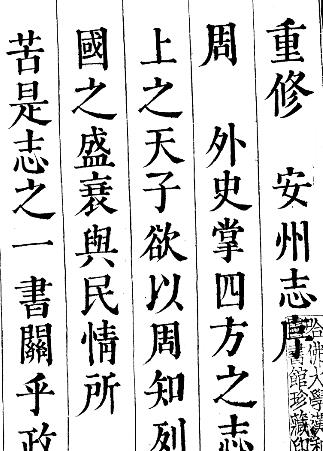 重修 安州志序
周 外史掌四方之志
上之天子欲以周知列
國之盛衰與民情所
苦是志之一書關乎政
哈佛大學漢和
圖書館珍藏印